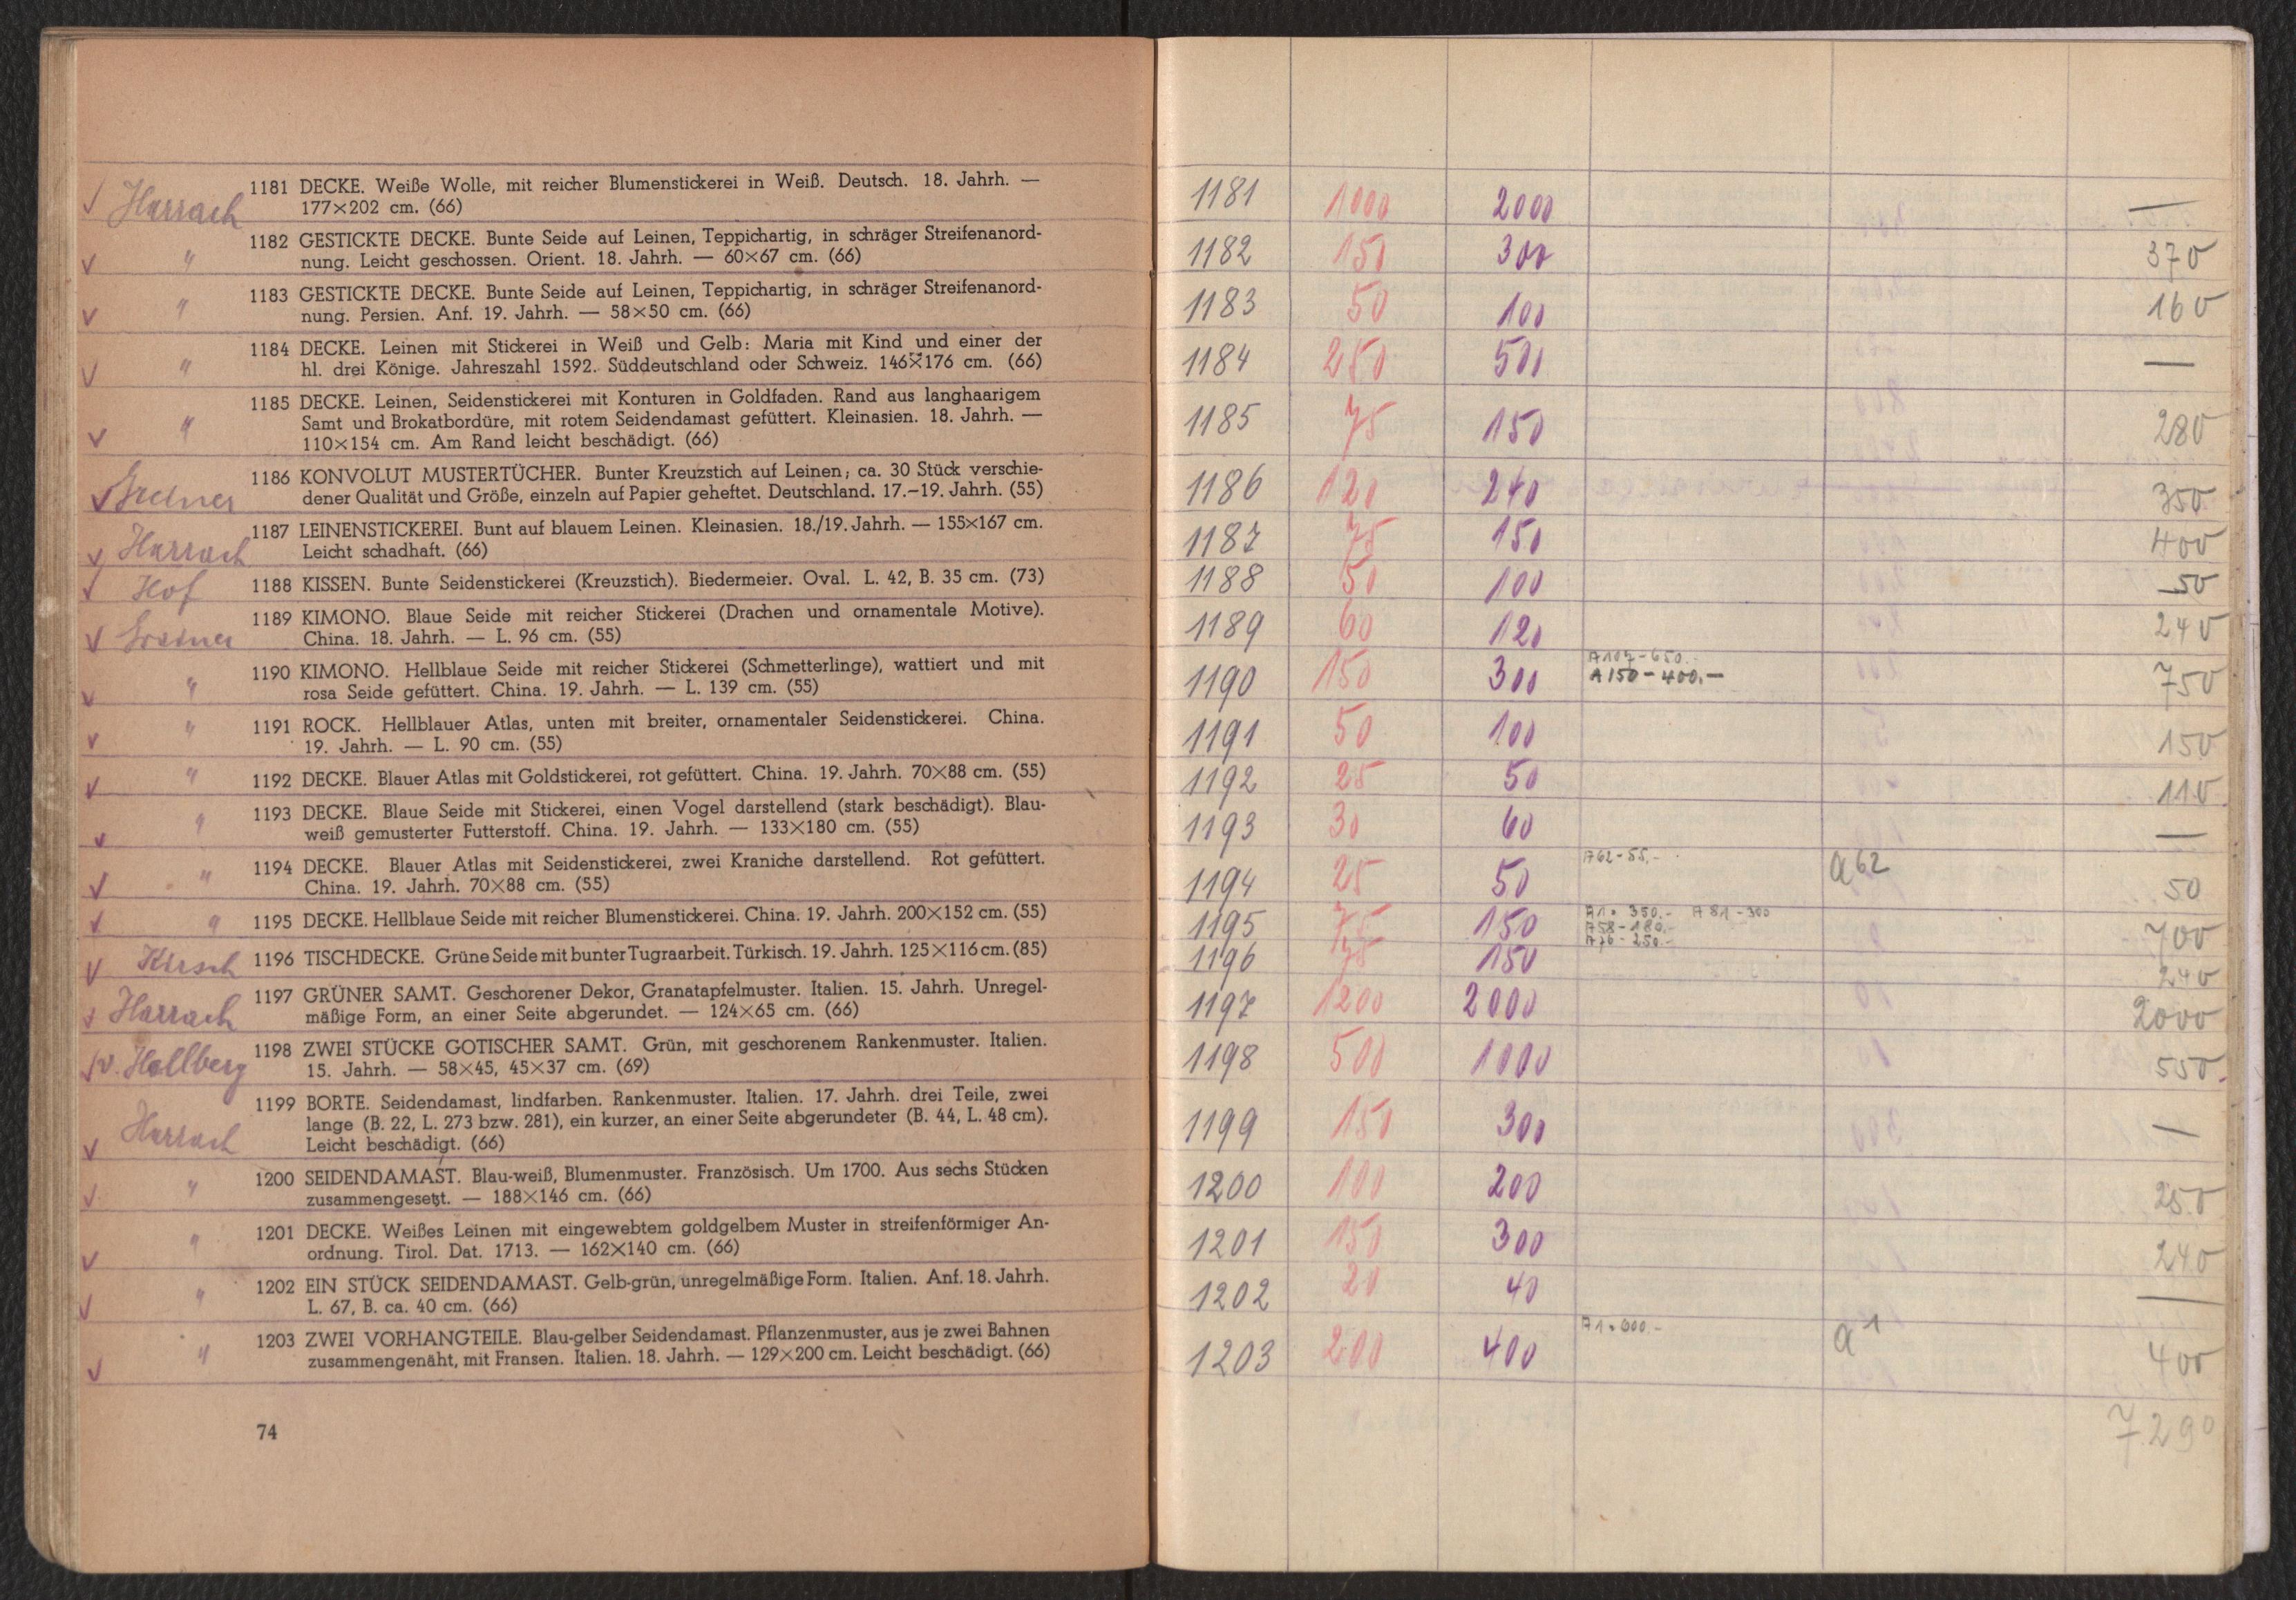 ✓ Harrach 1181 DECKE. Weiße Wolle, mit reicher Blumenstickerei in Weiß. Deutsch. 18. Jahrh. —
177×202 cm. (66)
✓ " 1182 GESTICKTE DECKE. Bunte Seide auf Leinen, Teppichartig, in schräger Streifenanord-
nung. Leicht geschossen. Orient. 18. Jahrh. — 60×67 cm. (66)
✓ " 1183 GESTICKTE DECKE. Bunte Seide auf Leinen, Teppichartig, in schräger Streifenanord-
nung. Persien. Anf. 19. Jahrh. — 58×50 cm. (66)
✓ " 1184 DECKE. Leinen mit Stickerei in Weiß und Gelb: Maria mit Kind und einer der
hl. drei Könige. Jahreszahl 1592. Süddeutschland oder Schweiz. 146×176 cm. (66)
✓ " 1185 DECKE. Leinen, Seidenstickerei mit Konturen in Goldfaden. Rand aus langhaarigem
Samt und Brokatbordüre, mit rotem Seidendamast gefüttert. Kleinasien. 18. Jahrh. —
110×154 cm. Am Rand leicht beschädigt. (66)
✓ 1186 KONVOLUT MUSTERTÜCHER. Bunter Kreuzstich auf Leinen; ca. 30 Stück verschie-
dener Qualität und Größe, einzeln auf Papier geheftet. Deutschland. 17.–19. Jahrh. (55)
✓ Harrach 1187 LEINENSTICKEREI. Bunt auf blauem Leinen. Kleinasien. 18./19. Jahrh. — 155×167 cm.
Leicht schadhaft. (66)
✓ Hof 1188 KISSEN. Bunte Seidenstickerei (Kreuzstich). Biedermeier. Oval. L. 42, B. 35 cm. (73)
✓ 1189 KIMONO. Blaue Seide mit reicher Stickerei (Drachen und ornamentale Motive).
China. 18. Jahrh. — L. 96 cm. (55)
✓ " 1190 KIMONO. Hellblaue Seide mit reicher Stickerei (Schmetterlinge), wattiert und mit
rosa Seide gefüttert. China. 19. Jahrh. — L. 139 cm. (55)
✓ " 1191 ROCK. Hellblauer Atlas, unten mit breiter, ornamentaler Seidenstickerei. China.
19. Jahrh. — L. 90 cm. (55)
✓ " 1192 DECKE. Blauer Atlas mit Goldstickerei, rot gefüttert. China. 19. Jahrh. 70×88 cm. (55)
✓ " 1193 DECKE. Blaue Seide mit Stickerei, einen Vogel darstellend (stark beschädigt). Blau-
weiß gemusterter Futterstoff. China. 19. Jahrh. — 133×180 cm. (55)
✓ " 1194 DECKE. Blauer Atlas mit Seidenstickerei, zwei Kraniche darstellend. Rot gefüttert.
China. 19. Jahrh. 70×88 cm. (55)
✓ " 1195 DECKE. Hellblaue Seide mit reicher Blumenstickerei. China. 19. Jahrh. 200×152 cm. (55)
✓ Kirsch 1196 TISCHDECKE. Grüne Seide mit bunter Tugraarbeit. Türkisch. 19. Jahrh. 125×116 cm. (85)
✓ Harrach 1197 GRÜNER SAMT. Geschorener Dekor, Granatapfelmuster. Italien. 15. Jahrh. Unregel-
mäßige Form, an einer Seite abgerundet. — 124×65 cm. (66)
✓ v. Hellberg 1198 ZWEI STÜCKE GOTISCHER SAMT. Grün, mit geschorenem Rankenmuster. Italien.
15. Jahrh. — 58×45, 45×37 cm. (69)
✓ Harrach 1199 BORTE. Seidendamast, lindfarben. Rankenmuster. Italien. 17. Jahrh. drei Teile, zwei
lange (B. 22, L. 273 bzw. 281), ein kurzer, an einer Seite abgerundeter (B. 44, L. 48 cm).
Leicht beschädigt. (66)
✓ " 1200 SEIDENDAMAST. Blau-weiß, Blumenmuster. Französisch. Um 1700. Aus sechs Stücken
zusammengesetzt. — 188×146 cm. (66)
✓ " 1201 DECKE. Weißes Leinen mit eingewebtem goldgelbem Muster in streifenförmiger An-
ordnung. Tirol. Dat. 1713. — 162×140 cm. (66)
✓ " 1202 EIN STÜCK SEIDENDAMAST. Gelb-grün, unregelmäßige Form. Italien. Anf. 18. Jahrh.
L. 67, B. ca. 40 cm. (66)
✓ " 1203 ZWEI VORHANGTEILE. Blau-gelber Seidendamast. Pflanzenmuster, aus je zwei Bahnen
zusammengenäht, mit Fransen. Italien. 18. Jahrh. — 129×200 cm. Leicht beschädigt. (66)
74
1181 1000 2000 —
1182 150 300 370
1183 50 100 160
1184 250 500 —
1185 75 150 280
1186 120 240 350
1187 75 150 400
1188 50 100 50
1189 60 120 240
1190 150 300 A107-650.- 750
A150-400.-
1191 50 100 150
1192 25 50 110
1193 30 60 —
1194 25 50 A62-55.- a62 50
1195 75 150 A1. 350.- A81-300 700
A58-180.-
A76-250.-
1196 75 150 240
1197 1200 2000 2000
1198 500 1000 550
1199 150 300 —
1200 100 200 250
1201 150 300 240
1202 20 40 —
1203 200 400 A1. 600.- a1 400
7290